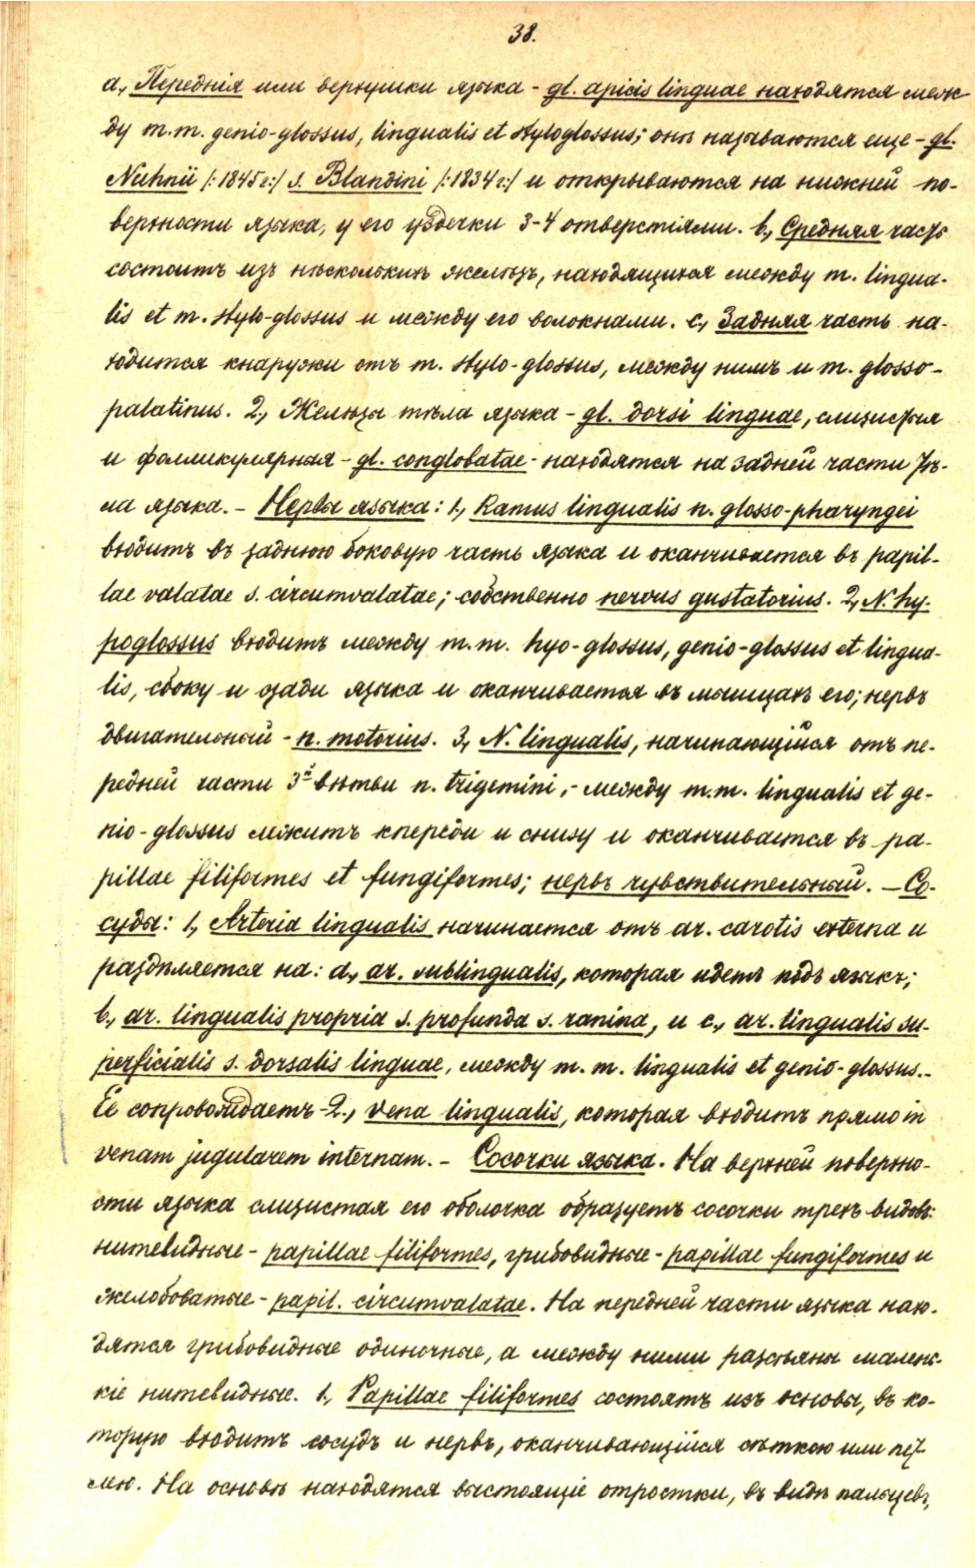 38.
a., Переднія или верхушки языка - gl. apicis linguae находятся меж-
ду m.m. genio-glossus, lingualis et styloglossus; онѣ называются еще - gl.
Nuhnii /:1845 г:/ s. Blandini /:1834 г:/ и открываются на нижней по-
верхности языка, у его уздечки 3-4 отверстіями. b., Средняя часть
состоитъ изъ нѣсколькихъ железъ, находящихся между m. lingua-
lis et m. stylo-glossus и между его волокнами. c., Задняя часть на-
ходится кнаружи отъ m. stylo-glossus, между нимъ и m. glosso-
palatinus. 2., Железы тѣла языка - gl. dorsi linguae, слизистыя
и фолликулярныя - gl. conglobatae - находятся на задней части тѣ-
ла языка. - Нервы языка: 1., Ramus lingualis n. glosso-pharyngei
входитъ въ заднюю боковую часть языка и оканчивается въ papil-
lae valatae s. circumvalatae; собственно nervus gustatorius. 2., N. hy-
poglossus входитъ между m.m. hyo-glossus, genio-glossus et lingua-
lis, сбоку и сзади языка и оканчивается въ мышцахъ его; нервъ
двигательный - n. motorius. 3., N. lingualis, начинающійся отъ пе-
редней части 3й вѣтви n. trigemini, - между m.m. lingualis et ge-
nio-glossus лежитъ кпереди и снизу и оканчивается въ pa-
pillae filiformes et fungiformes; нервъ чувствительный. - Со-
суды: 1., Arteria lingualis начинается отъ ar. carotis externa и
раздѣляется на: a., ar. sublingualis, которая идетъ подъ языкъ;
b., ar. lingualis propria s. profunda s. ranina, и c., ar. lingualis su-
perficialis s. dorsalis linguae, между m.m. lingualis et genio-glossus. -
Ее сопровождаетъ - 2., vena lingualis, которая входитъ прямо in
venam jugularem internam. - Сосочки языка. На верхней поверхно-
сти языка слизистая его оболочка образуетъ сосочки трехъ видовъ:
нитевидные - papillae filiformes, грибовидные - papillae fungiformes и
желобоватые - papil. circumvalatae. На передней части языка нахо-
дятся грибовидные одиночные, а между ними разсѣяны малень-
кіе нитевидные. 1., Papillae filiformes состоятъ изъ основы, въ ко-
торую входитъ сосудъ и нервъ, оканчивающійся сѣткою или пет-
лею. На основѣ находятся выстоящіе отростки, въ видѣ пальцевъ,